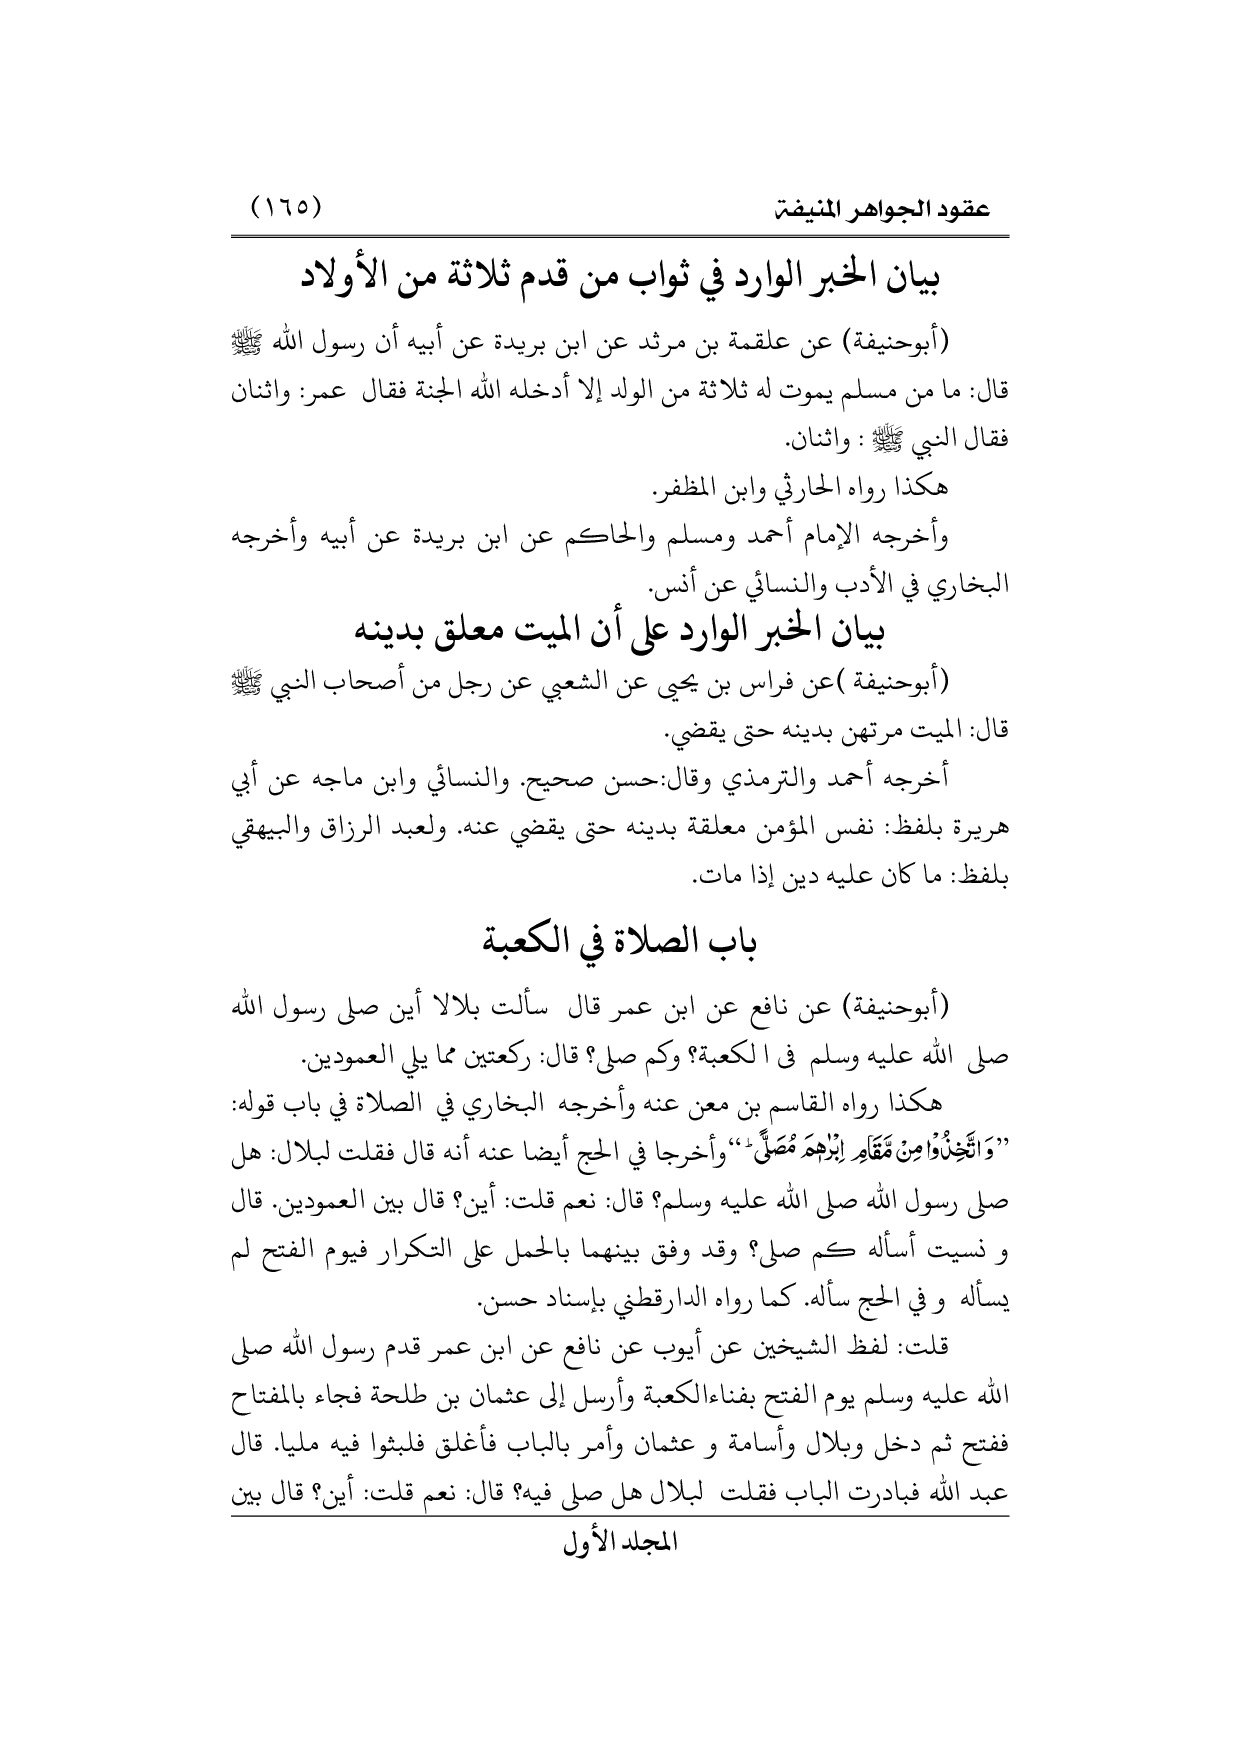 عقود الجواهر المنيفة (١٦٥)
بيان الخبر الوارد في ثواب من قدم ثلاثة من الأولاد
(أبوحنيفة) عن علقمة بن مرثد عن ابن بريدة عن أبيه أن رسول الله ﷺ
قال: ما من مسلم يموت له ثلاثة من الولد إلا أدخله الله الجنة فقال عمر: واثنان
فقال النبي ﷺ : واثنان.
هكذا رواه الحارثي وابن المظفر.
وأخرجه الإمام أحمد ومسلم والحاكم عن ابن بريدة عن أبيه وأخرجه
البخاري في الأدب والنسائي عن أنس.
بيان الخبر الوارد على أن الميت معلق بدينه
(أبوحنيفة )عن فراس بن يحيى عن الشعبي عن رجل من أصحاب النبي ﷺ
قال: الميت مرتهن بدينه حتى يقضي.
أخرجه أحمد والترمذي وقال:حسن صحيح. والنسائي وابن ماجه عن أبي
هريرة بلفظ: نفس المؤمن معلقة بدينه حتى يقضي عنه. ولعبد الرزاق والبيهقي
بلفظ: ما كان عليه دين إذا مات.
باب الصلاة في الكعبة
(أبوحنيفة) عن نافع عن ابن عمر قال سألت بلالا أين صلى رسول الله
صلى الله عليه وسلم فى ا لكعبة؟ وكم صلى؟ قال: ركعتين مما يلي العمودين.
هكذا رواه القاسم بن معن عنه وأخرجه البخاري في الصلاة في باب قوله:
”وَاتَّخِذُوْا مِنْ مَّقَامِ اِبْرٰهٖمَ مُصَلًّىؕ“وأخرجا في الحج أيضا عنه أنه قال فقلت لبلال: هل
صلى رسول الله صلى الله عليه وسلم؟ قال: نعم قلت: أين؟ قال بين العمودين. قال
و نسيت أسأله كم صلى؟ وقد وفق بينهما بالحمل على التكرار فيوم الفتح لم
يسأله و في الحج سأله. كما رواه الدارقطني بإسناد حسن.
قلت: لفظ الشيخين عن أيوب عن نافع عن ابن عمر قدم رسول الله صلى
الله عليه وسلم يوم الفتح بفناءالكعبة وأرسل إلى عثمان بن طلحة فجاء بالمفتاح
ففتح ثم دخل وبلال وأسامة و عثمان وأمر بالباب فأغلق فلبثوا فيه مليا. قال
عبد الله فبادرت الباب فقلت لبلال هل صلى فيه؟ قال: نعم قلت: أين؟ قال بين
المجلد الأول